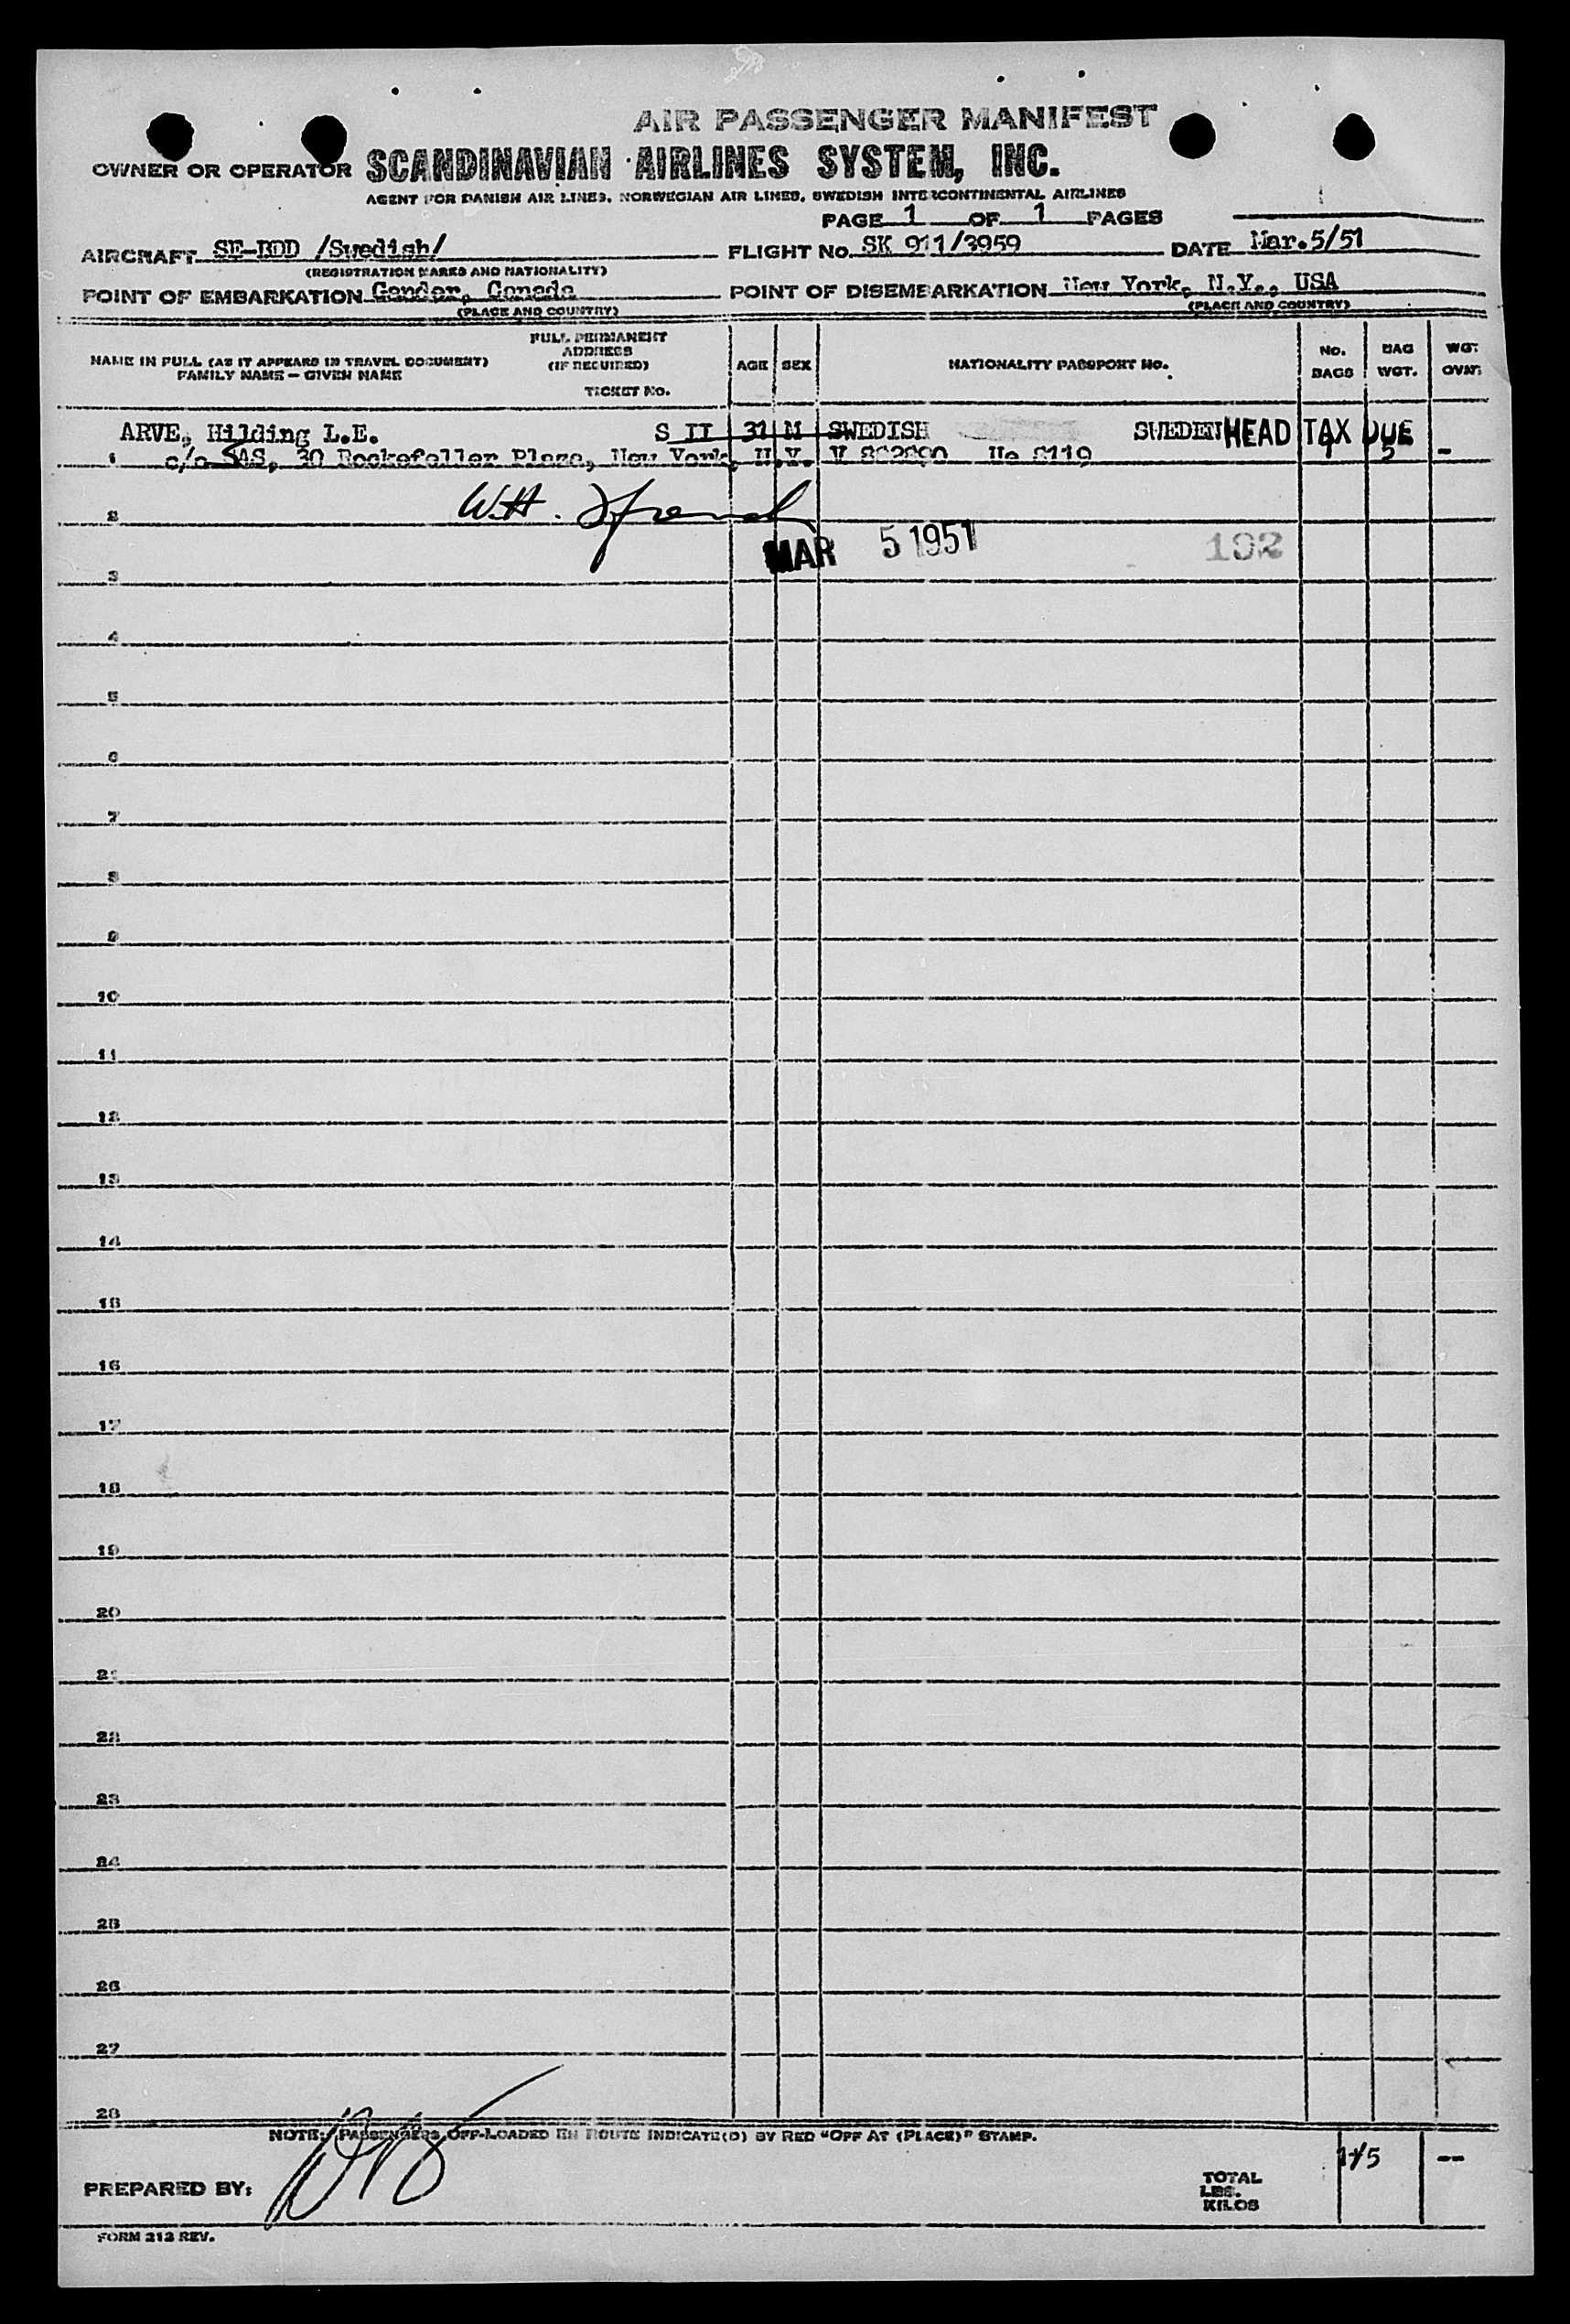 AIR PASSENGER MANIFEST
OWNER OR OPERATOR SCANDINAVIAN AIRLINES SYSTEM, INC.
AGENT FOR DANISH AIR LINES, NORWEGIAN AIR LINES, SWEDISH INTERCONTINENTAL AIRLINES
PAGE 1 OF 1 PAGES
AIRCRAFT SE-BDD /Swedish/ FLIGHT No. SK 911/3959 DATE Mar.5/51
(REGISTRATION MARKS AND NATIONALITY)
POINT OF EMBARKATION Gander, Canada POINT OF DISEMBARKATION New York, N.Y., USA
(PLACE AND COUNTRY) (PLACE AND COUNTRY)
NAME IN FULL (AS IT APPEARS IN TRAVEL DOCUMENT)
FAMILY NAME – GIVEN NAME
FULL PERMANENT
ADDRESS
(IF REQUIRED)
TICKET NO.
AGE SEX NATIONALITY PASSPORT NO. NO. BAGS BAG WGT. WGT. OVWT.
ARVE, Hilding L.E. S II 31 M SWEDISH SWEDEN HEAD TAX DUE
1 c/o SAS, 30 Rockefeller Plaza, New York, N.Y. V 1 5 -
2 W.H.
MAR 5 1951 192
3
4
5
6
7
8
9
10
11
12
13
14
15
16
17
18
19
20
21
22
23
24
25
26
27
28
NOTE: PASSENGERS OFF-LOADED EN ROUTE INDICATE(D) BY RED "OFF AT (PLACE)" STAMP.
PREPARED BY:
TOTAL
LBS.
KILOS
1/5 --
FORM 212 REV.